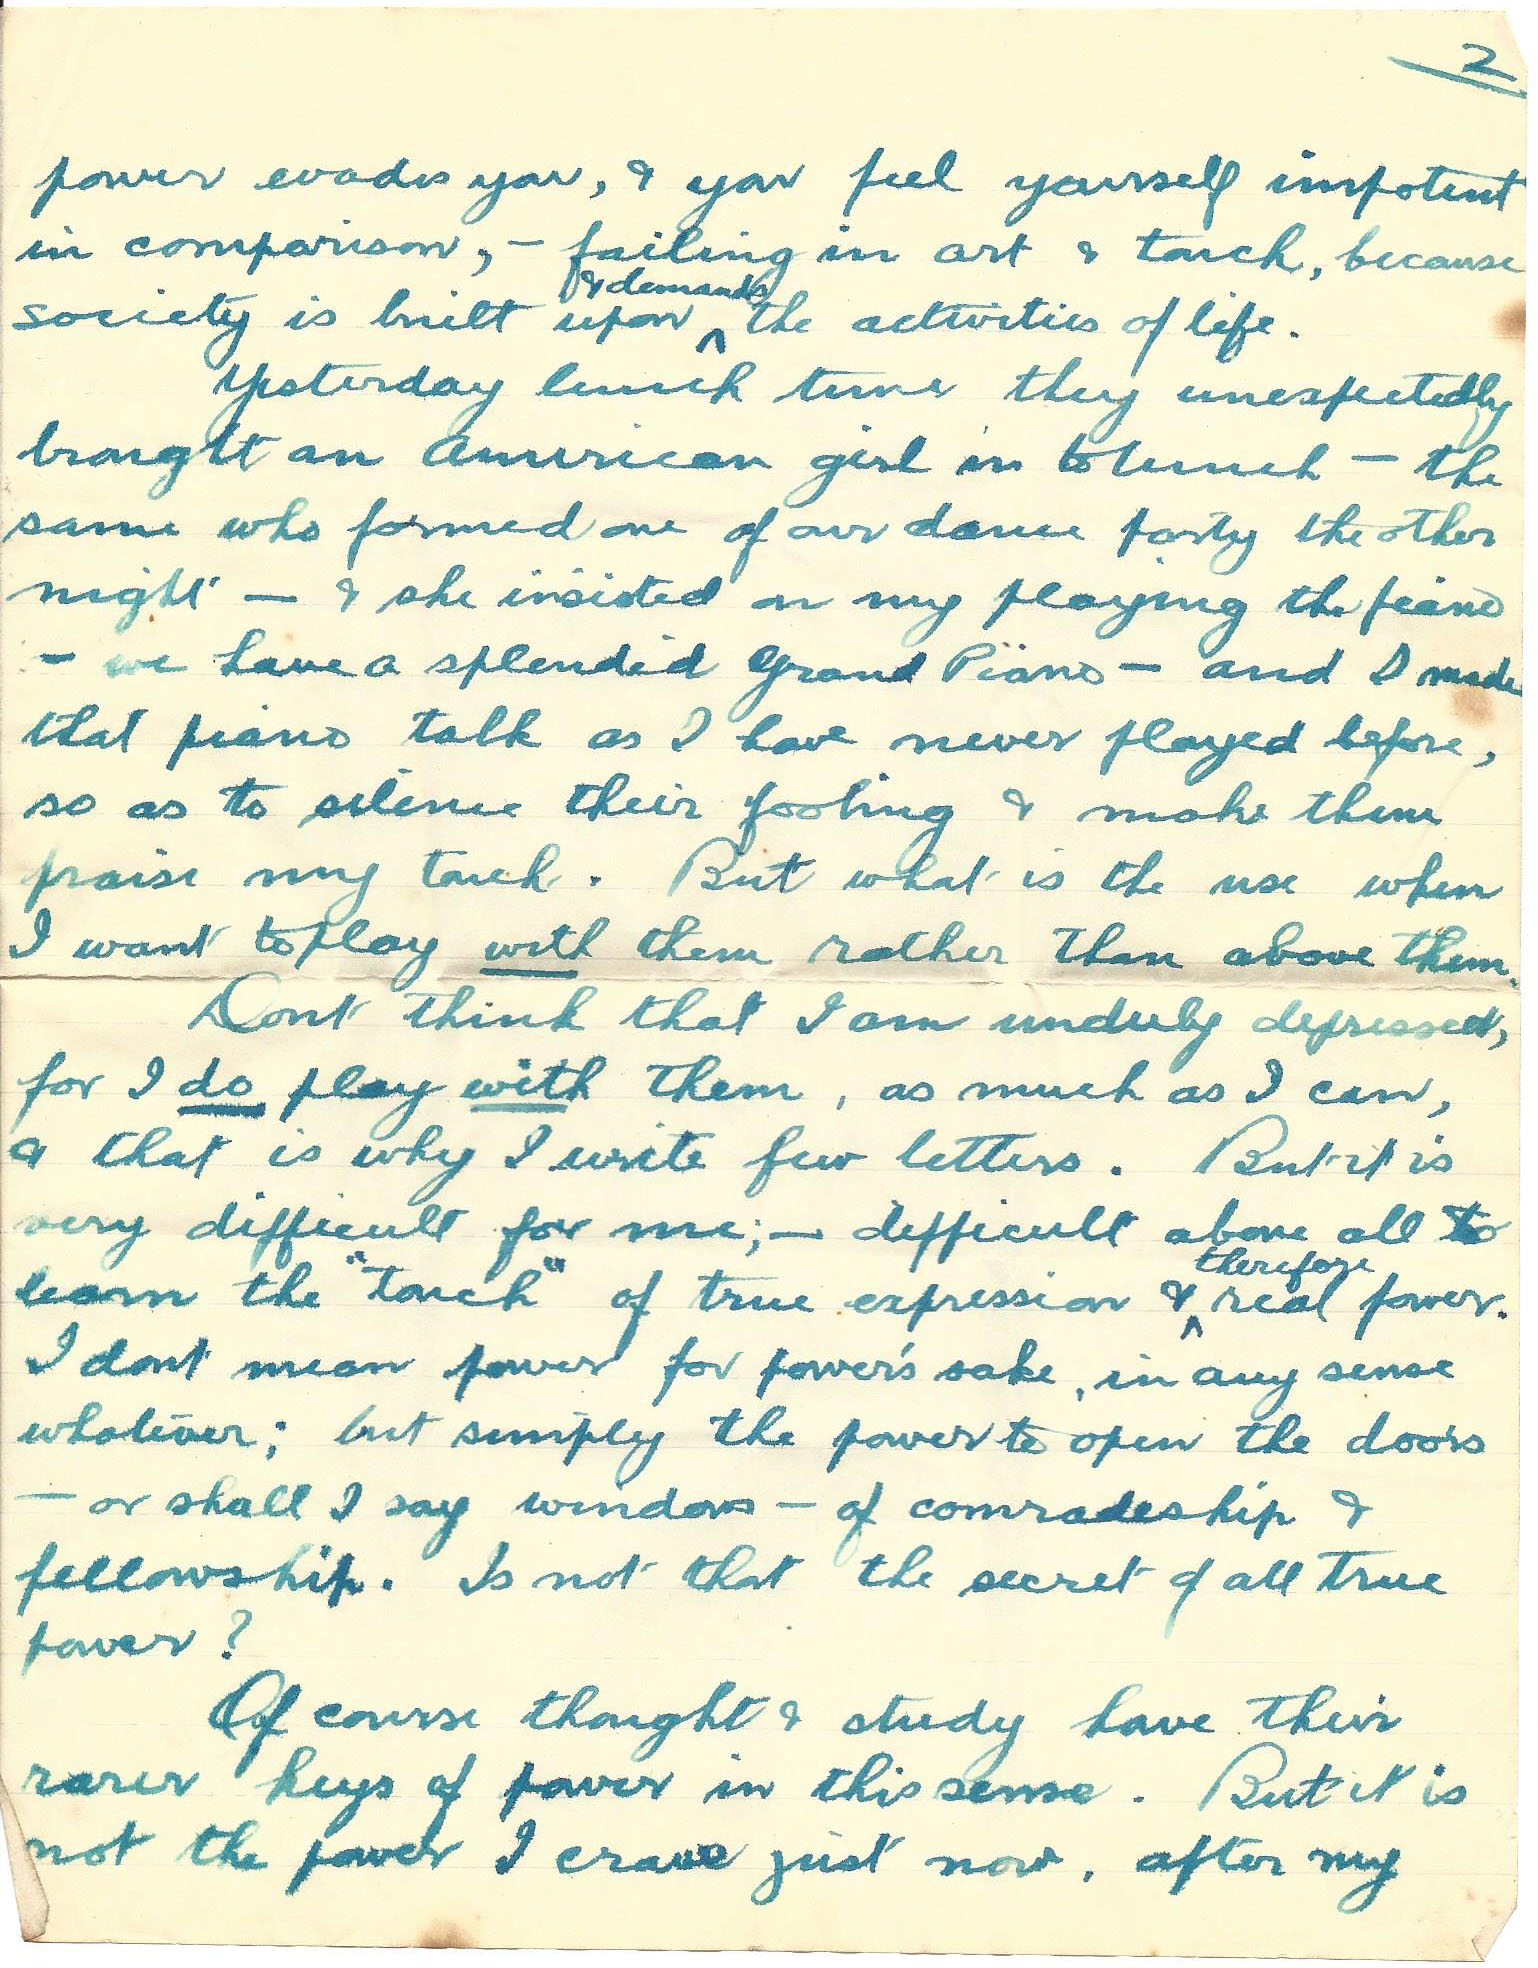 2
power evades you, & you feel yourself impotent
in comparison, – failing in art & touch, because
& demands
society is built upon ^ the activities of life.
Yesterday lunch time they unexpectedly
brought an American girl in to lunch – the
same who formed one of our dance party the other
night – & she insisted on my playing the piano
– we have a splendid Grand Piano – and I made
that piano talk as I have never played before,
so as to silence their fooling & make them
praise my touch. But what is the use when
I want to play with them rather than above them.
Dont think that I am unduly depressed,
for I do play with them, as much as I can,
& that is why I write few letters. But it is
very difficult for me; – difficult above all to
therefore
learn the "touch" of true expression & ^ real power.
I dont mean power for power's sake, in any sense
whatever; but simply the power to open the doors
– or shall I say windows – of comradeship &
fellowship. Is not that the secret of all true
power?
Of course thought & study have their
rarer keys of power in this sense. But it is
not the power I crave just now, after my